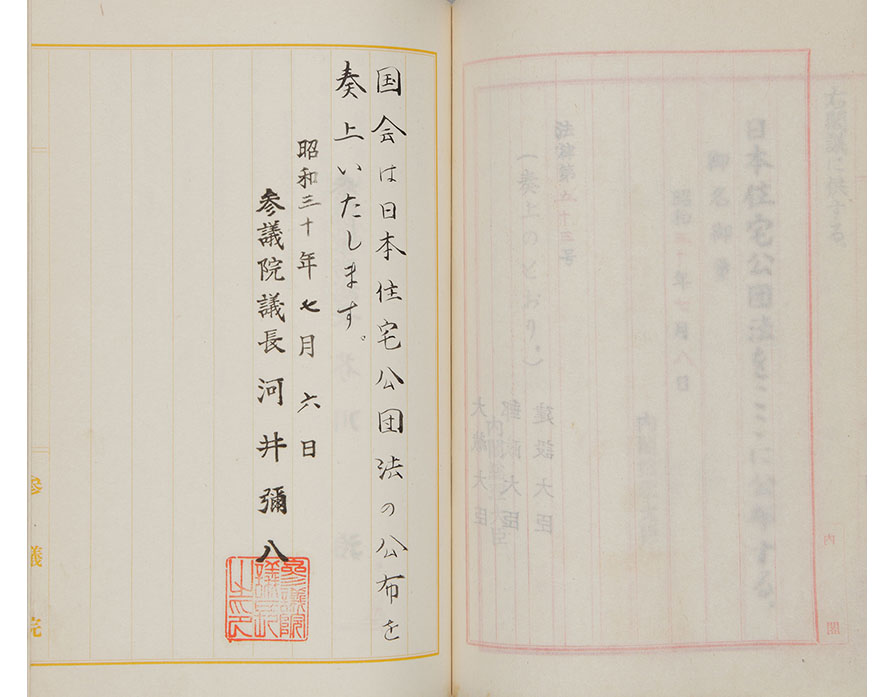 右閣議に供する。
日本住宅公団法をここに公布する。
御名御璽
昭和三十年七月八日
法律第五十三号
(奏上のとおり。)
建設大臣
大蔵大臣
内閣
国会は日本住宅公団法の公布を
奏上いたします。
昭和三十年七月六日
参議院議長河井彌八
參議院
議長
之印
参議院